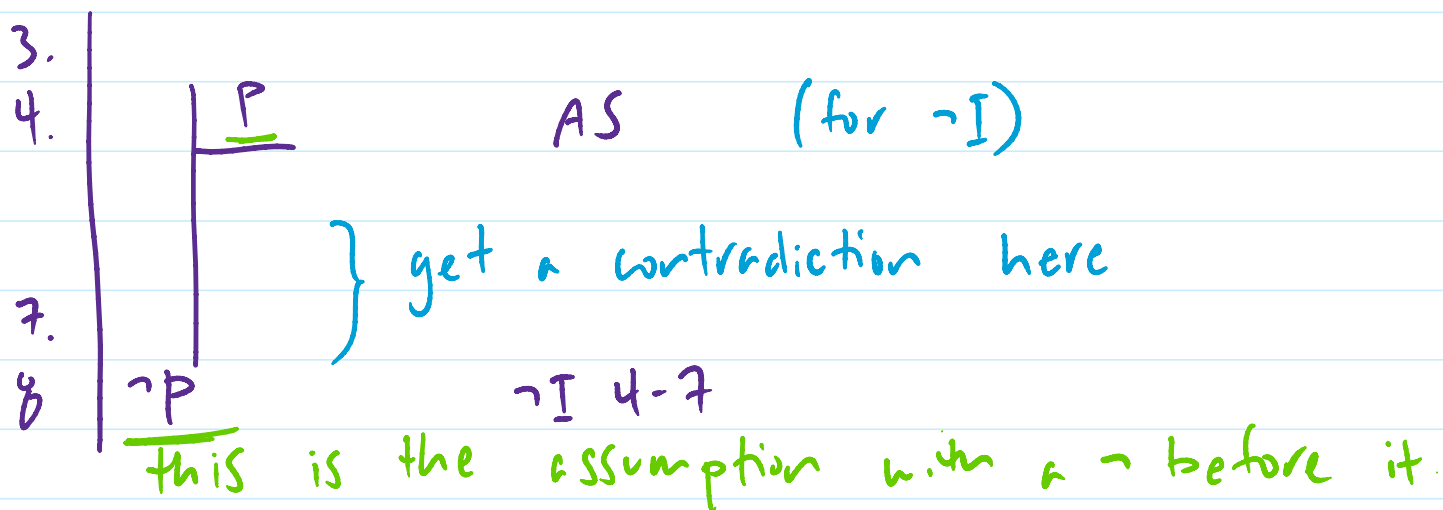 3.
4. P AS (for ¬I)
} get a contradiction here
7.
8 ¬P ¬I 4-7
this is the assumption with a ¬ before it.